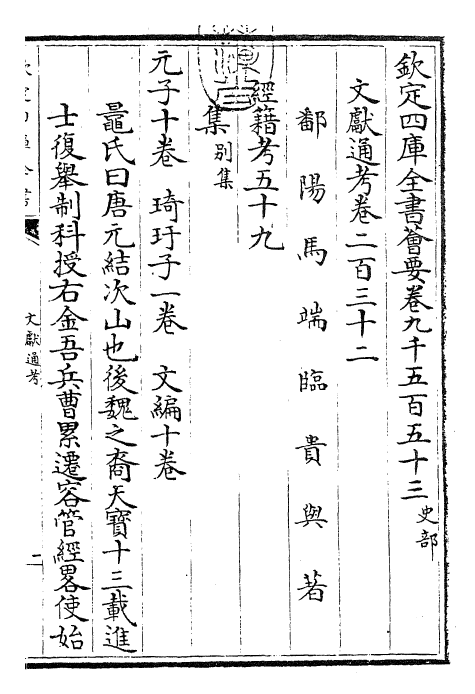 欽定四庫全書薈要卷九千五百五十三史部
文獻通考卷二百三十二
鄱陽馬端臨貴與著
經籍考五十九
集别集
元子十卷 琦玗子一卷 文編十卷
鼂氏曰唐元結次山也後魏之裔天寶十三載進
士復舉制科授右金吾兵曹累遷容管經畧使始
文獻通考